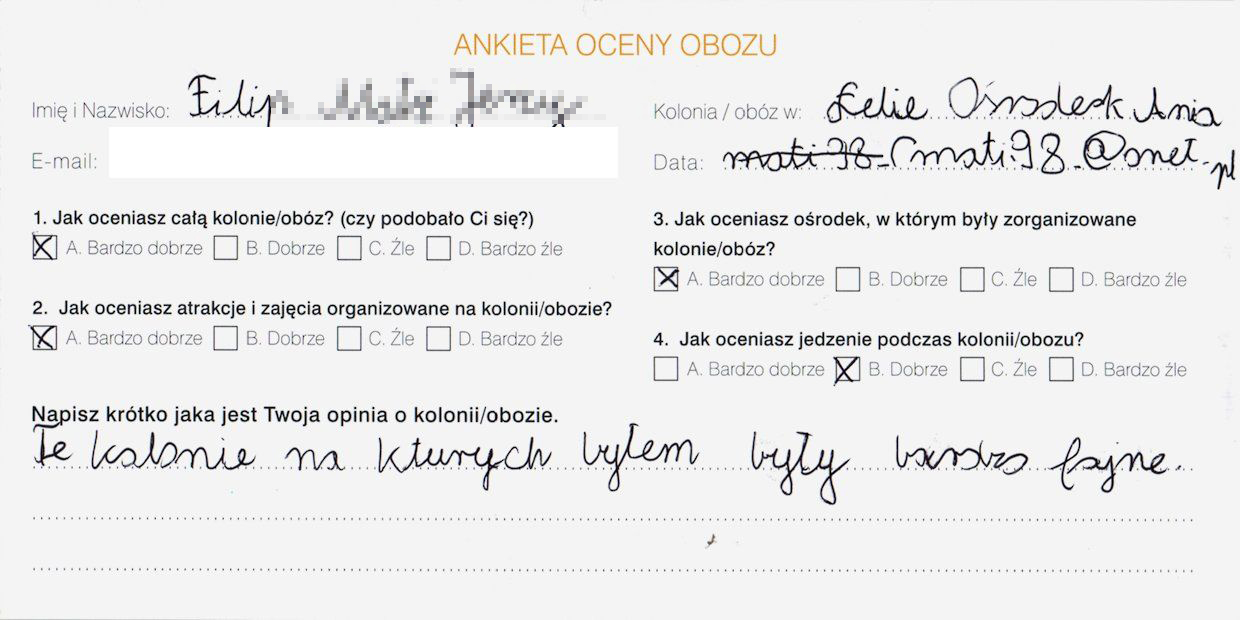 ANKIETA OCENY OBOZU
Imię i Nazwisko: Filip
Kolonia / obóz w: Łelie Ośrodek Ania
E-mail:
Data: mati 98 mati98 @onet.pl
1. Jak oceniasz całą kolonie/obóz? (czy podobało Ci się?)
A. Bardzo dobrze B. Dobrze C. Źle D. Bardzo źle
2. Jak oceniasz atrakcje i zajęcia organizowane na kolonii/obozie?
A. Bardzo dobrze B. Dobrze C. Źle D. Bardzo źle
3. Jak oceniasz ośrodek, w którym były zorganizowane
kolonie/obóz?
A. Bardzo dobrze B. Dobrze C. Źle D. Bardzo źle
4. Jak oceniasz jedzenie podczas kolonii/obozu?
A. Bardzo dobrze B. Dobrze C. Źle D. Bardzo źle
Napisz krótko jaka jest Twoja opinia o kolonii/obozie.
Te kolonie na kturych byłem były bardzo fajne.